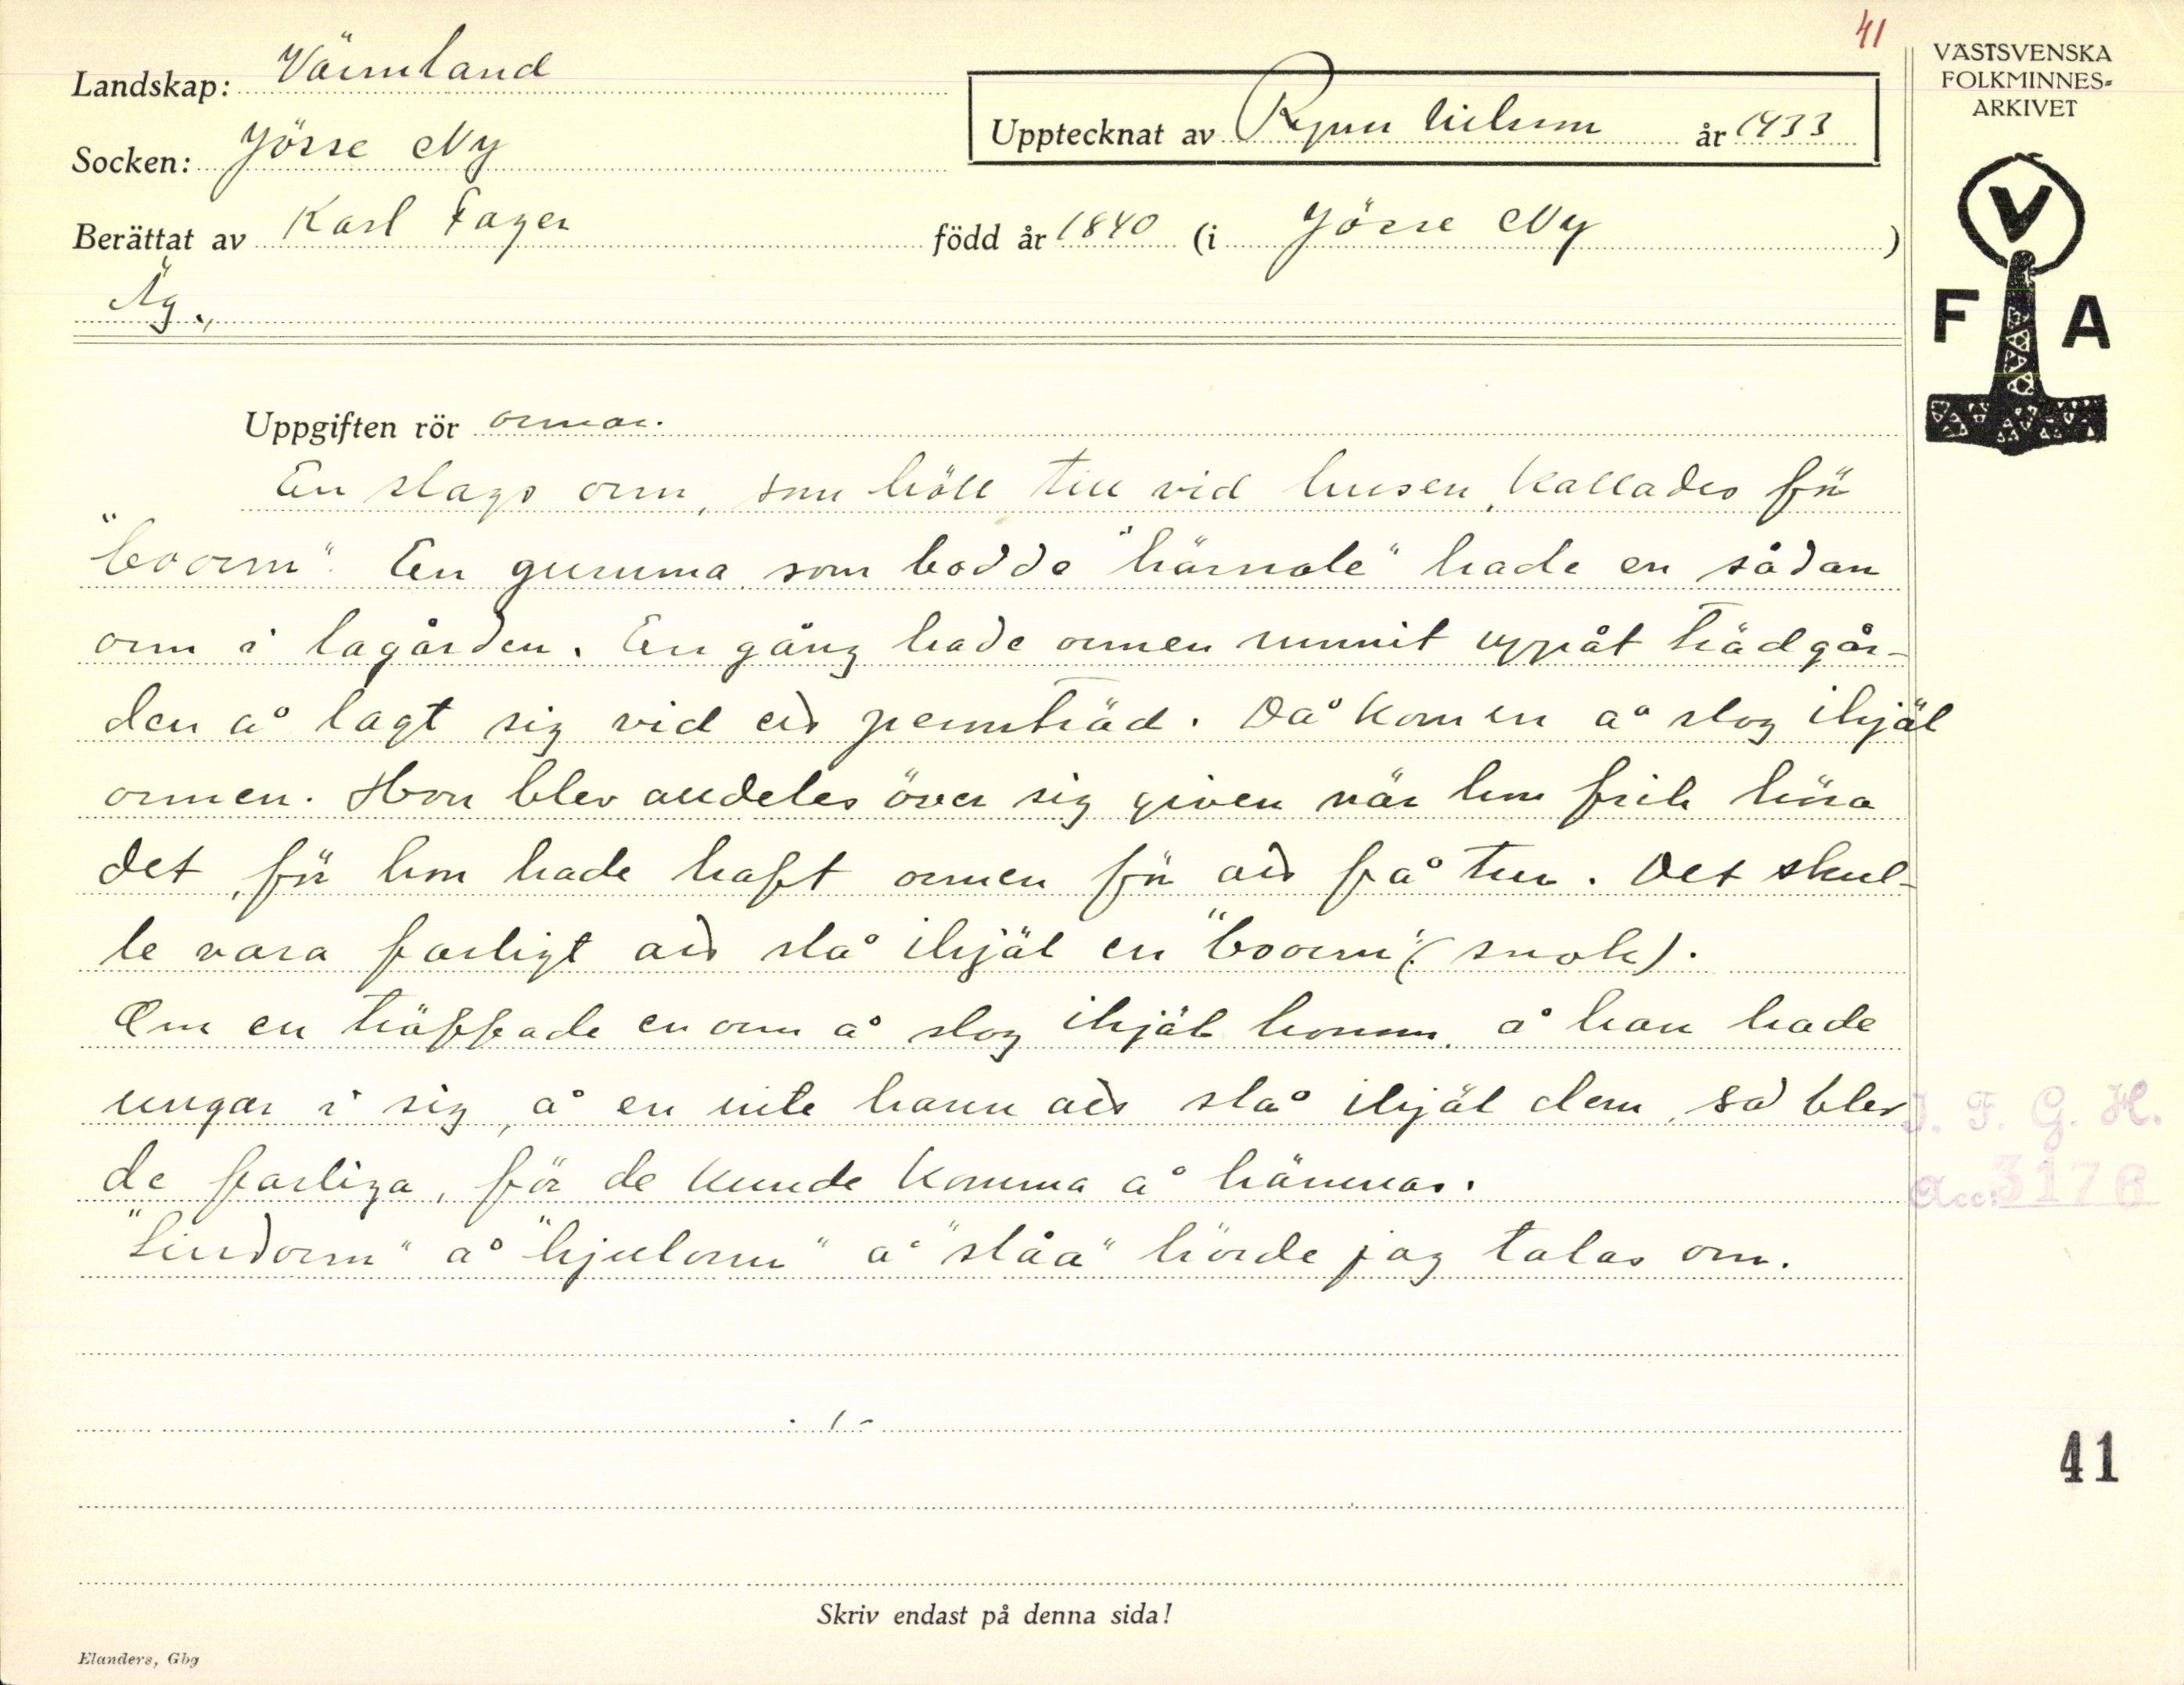 41
VÄSTSVENSKA
FOLKMINNES-
ARKIVET
Landskap: Värmland
Upptecknat av Ragnar Nilsson år 1933
Socken: Jösse Ny
Berättat av Karl Fager född år 1840 (i Jösse Ny)
Äg.,
V
F A
Uppgiften rör ormar.
En slags orm, som höll till vid husen, kallades för
"boorm". En gumma som bodde "härnale" hade en sådan
orm i lagården. En gång hade ormen runnit uppåt trädgår-
den å lagt sig vid ett perenträd. Då kom en å slog ihjäl
ormen. Hon blev alldeles över sig given när hon fick höra
det, för hon hade haft ormen för att få tur. Det skul-
le vara farligt att slå ihjäl en "boorm" (snok).
Om en träffade en orm å slog ihjäl honom, å han hade
ungar i sig, å en inte hann att slå ihjäl dem, så blev
de farliga, för de kunde komma å hämnas.
"Lindorm" å "hjulorm" å "slåa" hörde jag talas om.
I. F. G. H.
Acc. 3176
41
Skriv endast på denna sida!
Elanders, Gbg